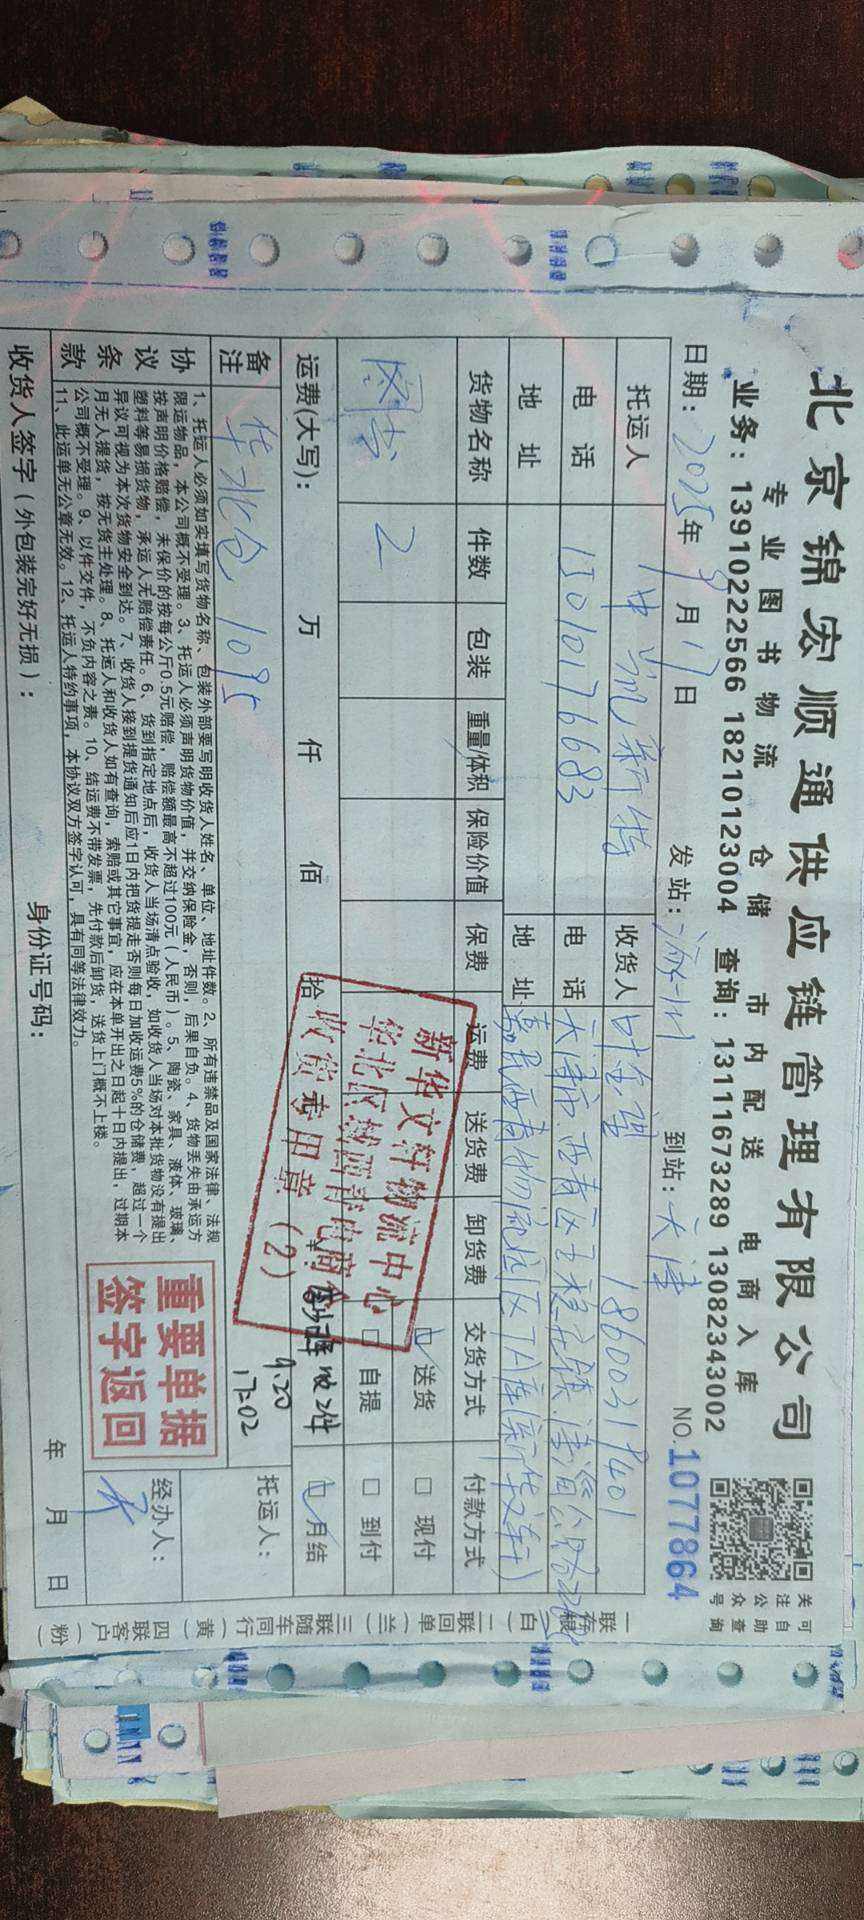 北京锦宏顺通供应链管理有限公司
专业图书物流 仓储 市内配送 电商入库
业务：13910222566 18210123004 查询：13111673289 13082343002
可自助查询
关注公众号
日期：2025年9月17日 发站： 到站：天津 NO.1077864
托运人 中航新特 收货人 18600319401
电话 15010176683 电话 天津市西青区王稳庄镇津淄公路
地址 地址 嘉民西青物流园区7A库新华文轩
货物名称 件数 包装 重量/体积 保险价值 保费 运费 送货费 卸货费 交货方式 付款方式
图书 2 送货 现付
自提 到付
运费(大写)： 万 仟 佰 拾 月结
新华文轩物流中心
收货专用章（2）
实收2件
9.20
17:02
备注 华北仓 1095
托运人：
经办人：
重要单据
签字返回
协议条款
1、托运人必须如实填写货物名称、包装外部要写明收货人姓名、单位、地址件数。2、所有违禁品及国家法律、法规
限运物品，本公司概不受理。3、托运人必须声明货物价值，并交纳保险金，否则，后果自负。4、货物丢失由承运方
按声明价格赔偿，未保价的按每公斤0.5元赔偿，赔偿额最高不超过100元（人民币）。5、陶瓷、家具、液体、玻璃、
塑料等易损货物，承运人无赔偿责任。6、货到指定地点后，收货人当场清点验收，如收货人当场对本批货物没有提出
异议可视为本次货物安全到达。7、收货人接到提货通知后应1日内把货提走否则每日加收运费5%的仓储费，超过一个
月无人提货，按无货主处理。8、托运人和收货人如有查询，索赔或其它事宜，应在本单开出之日起十日内提出，过期本
公司概不受理。9、以件交件，不负内容之责。10、结运费不带发票，先付款后卸货，送货上门概不上楼。
11、此运单无公章无效。12、托运人特约事项，本协议双方签字认可，具有同等法律效力。
收货人签字（外包装完好无损）： 身份证号码： 年 月 日
一联存根（白） 二联回单（兰） 三联随车同行（黄） 四联客户（粉）